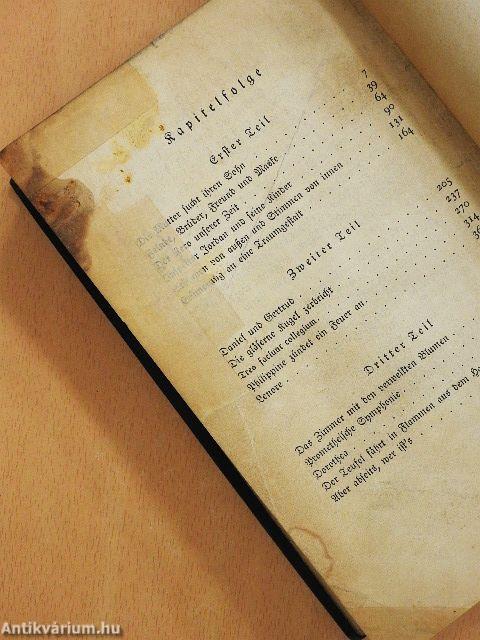 Kapitelfolge
Erster Teil
Mutter sucht ihren Sohn . . . . . . . . 7
Brüder, Freund und Maske . . . . . . . 39
Der Nero unserer Zeit . . . . . . . . 64
Jordan und seine Kinder . . . . . . . 90
von außen und Stimmen von innen . . . 131
an eine Traumgestalt . . . . . . . 164
Zweiter Teil
Daniel und Gertrud . . . . . . . . 205
Die gläserne Kugel zerbricht . . . . . . . 237
Tres faciunt collegium . . . . . . . . 270
Philippine zündet ein Feuer an . . . . . . . 314
Lenore . . . . . . . .
Dritter Teil
Das Zimmer mit den verwelkten Blumen . . .
Prometheische Symphonie . . . . . .
Dorothea . . . . . . . .
Der Teufel fährt in Flammen aus dem
Aber abseits, wer ist's . . . . .
Antikvárium.hu